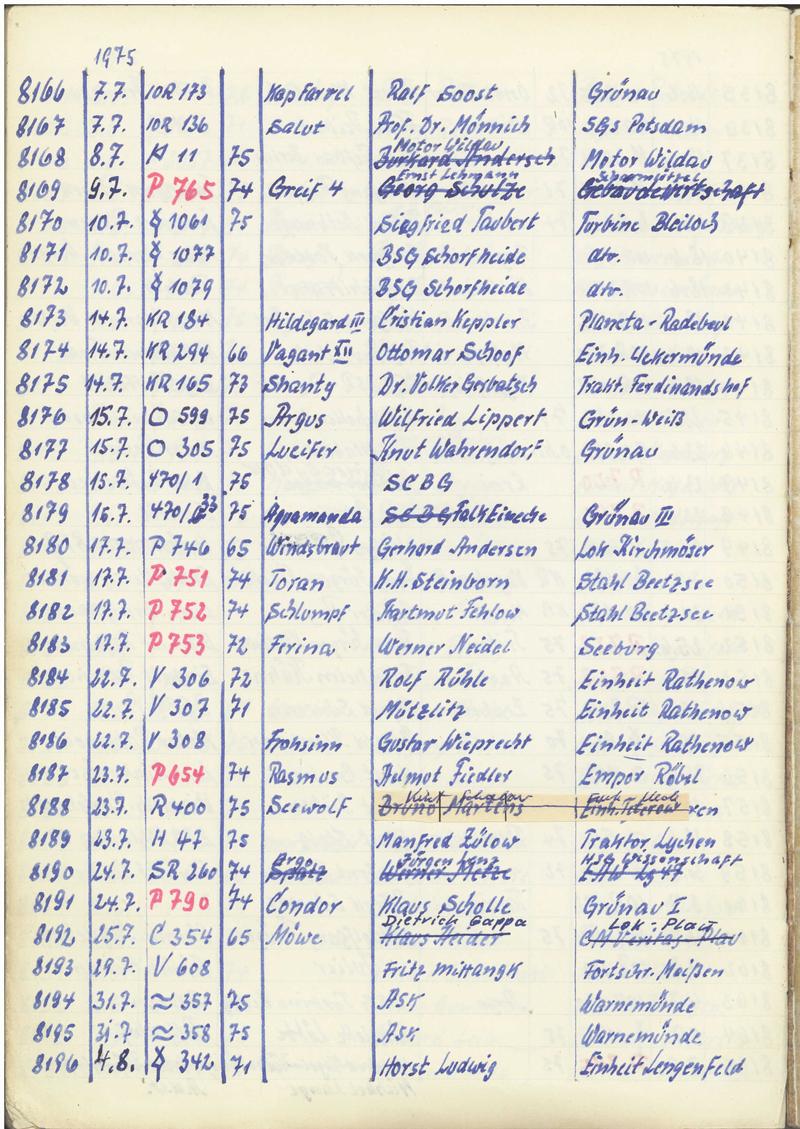 1975
8166 7.7. 10R 173 Kap Farrel Ralf Soost Grünau
8167 7.7. 10R 136 Salut Prof. Dr. Mönnich SGs Potsdam
Motor Wildau
8168 8.7. 11 75 Burkard Andersch Motor Wildau
Ernst Lehmann Scharmützel
8169 9.7. P 765 74 Greif 4 Georg Schulze Gebäudewirtschaft
8170 10.7. 1061 75 Siegfried Taubert Turbine Bleiloch
8171 10.7. 1077 BSG Schorfheide dto.
8172 10.7. 1079 BSG Schorfheide dto.
8173 14.7. KR 184 Hildegard III Cristian Keppler Planeta-Radebeul
8174 14.7. KR 294 66 Vagant XII Ottomar Schoof Einh. Uckermünde
8175 14.7. KR 165 73 Shanty Dr. Volker Gerbatsch Trakt. Ferdinandshof
8176 15.7. O 599 75 Argus Wilfried Lippert Grün-Weiß
8177 15.7. O 305 75 Lucifer Knut Wahrendorf Grünau
8178 15.7. 470/1 75 SCBG
33
8179 15.7. 470/ 75 Aquamanda SCBG Falk Einecke Grünau III
8180 17.7. P 746 65 Windsbraut Gerhard Andersen Lok Kirchmöser
8181 17.7. P 751 74 Toran K.H. Steinborn Stahl Beetzsee
8182 17.7. P 752 74 Schlumpf Hartmut Fehlow Stahl Beetzsee
8183 17.7. P 753 72 Firina Werner Neidel Seeburg
8184 22.7. V 306 72 Rolf Rühle Einheit Rathenow
8185 22.7. V 307 71 Mützlitz Einheit Rathenow
8186 22.7. V 308 Frohsinn Gustav Wieprecht Einheit Rathenow
8187 23.7. P 654 74 Rasmus Helmut Fiedler Empor Röbel
8188 23.7. R 400 75 Seewolf Bruno Martens Einh. Teterow ren
8189 23.7. H 47 75 Manfred Zülow Traktor Lychen
Argo Jürgen HSG Wissenschaft
8190 24.7. SR 260 74 Spatz Werner
8191 24.7. P 790 74 Condor Klaus Scholle Grünau I
Dietrich Gappa Lok. Plau
8192 25.7. C 354 65 Möwe Klaus Heider Veritas-Plau
8193 29.7. V 608 Fritz Mittangk Fortschr. Meißen
8194 31.7. ≈ 357 75 ASK Warnemünde
8195 31.7 ≈ 358 75 ASK Warnemünde
8196 4.8. 342 71 Horst Ludwig Einheit Lengenfeld